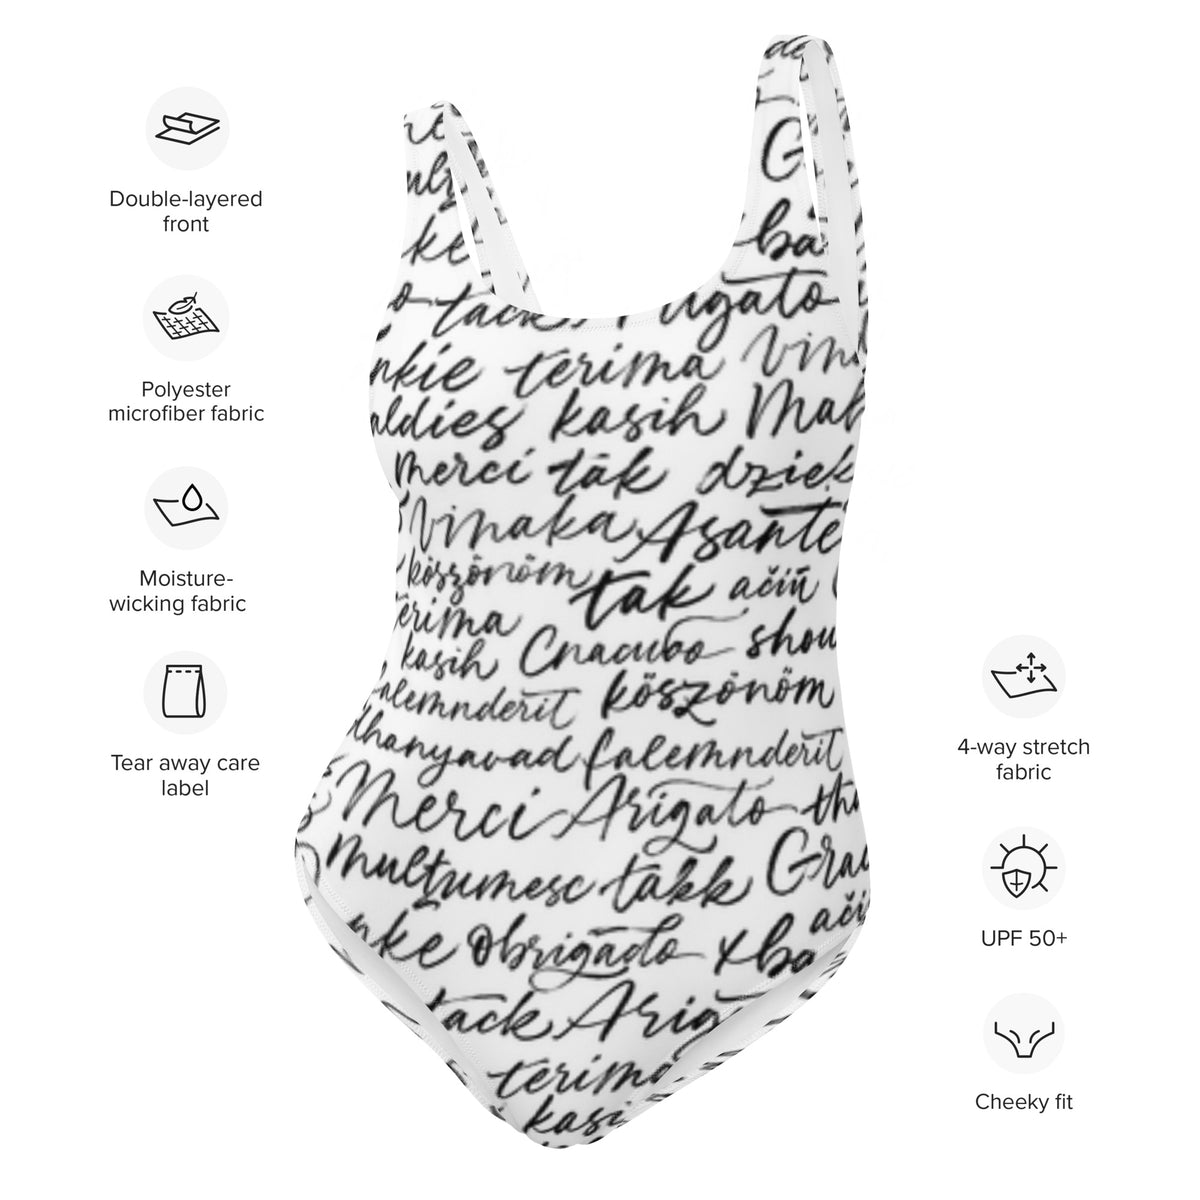 Double-layered
front
Polyester
microfiber fabric
Moisture-
wicking fabric
Tear away care
label
tack
terima
kasih
merci tāk
Vinaka Asante
köszönöm tak ačiū
terima
kasih Спасибо shou
falemnderit köszönöm
dhanyavad falemnderit
Merci Arigato tha
mulţumesc takk Grac
nke Obrigado xba
ači
tack Arig
terima
kasi
4-way stretch
fabric
UPF 50+
Cheeky fit